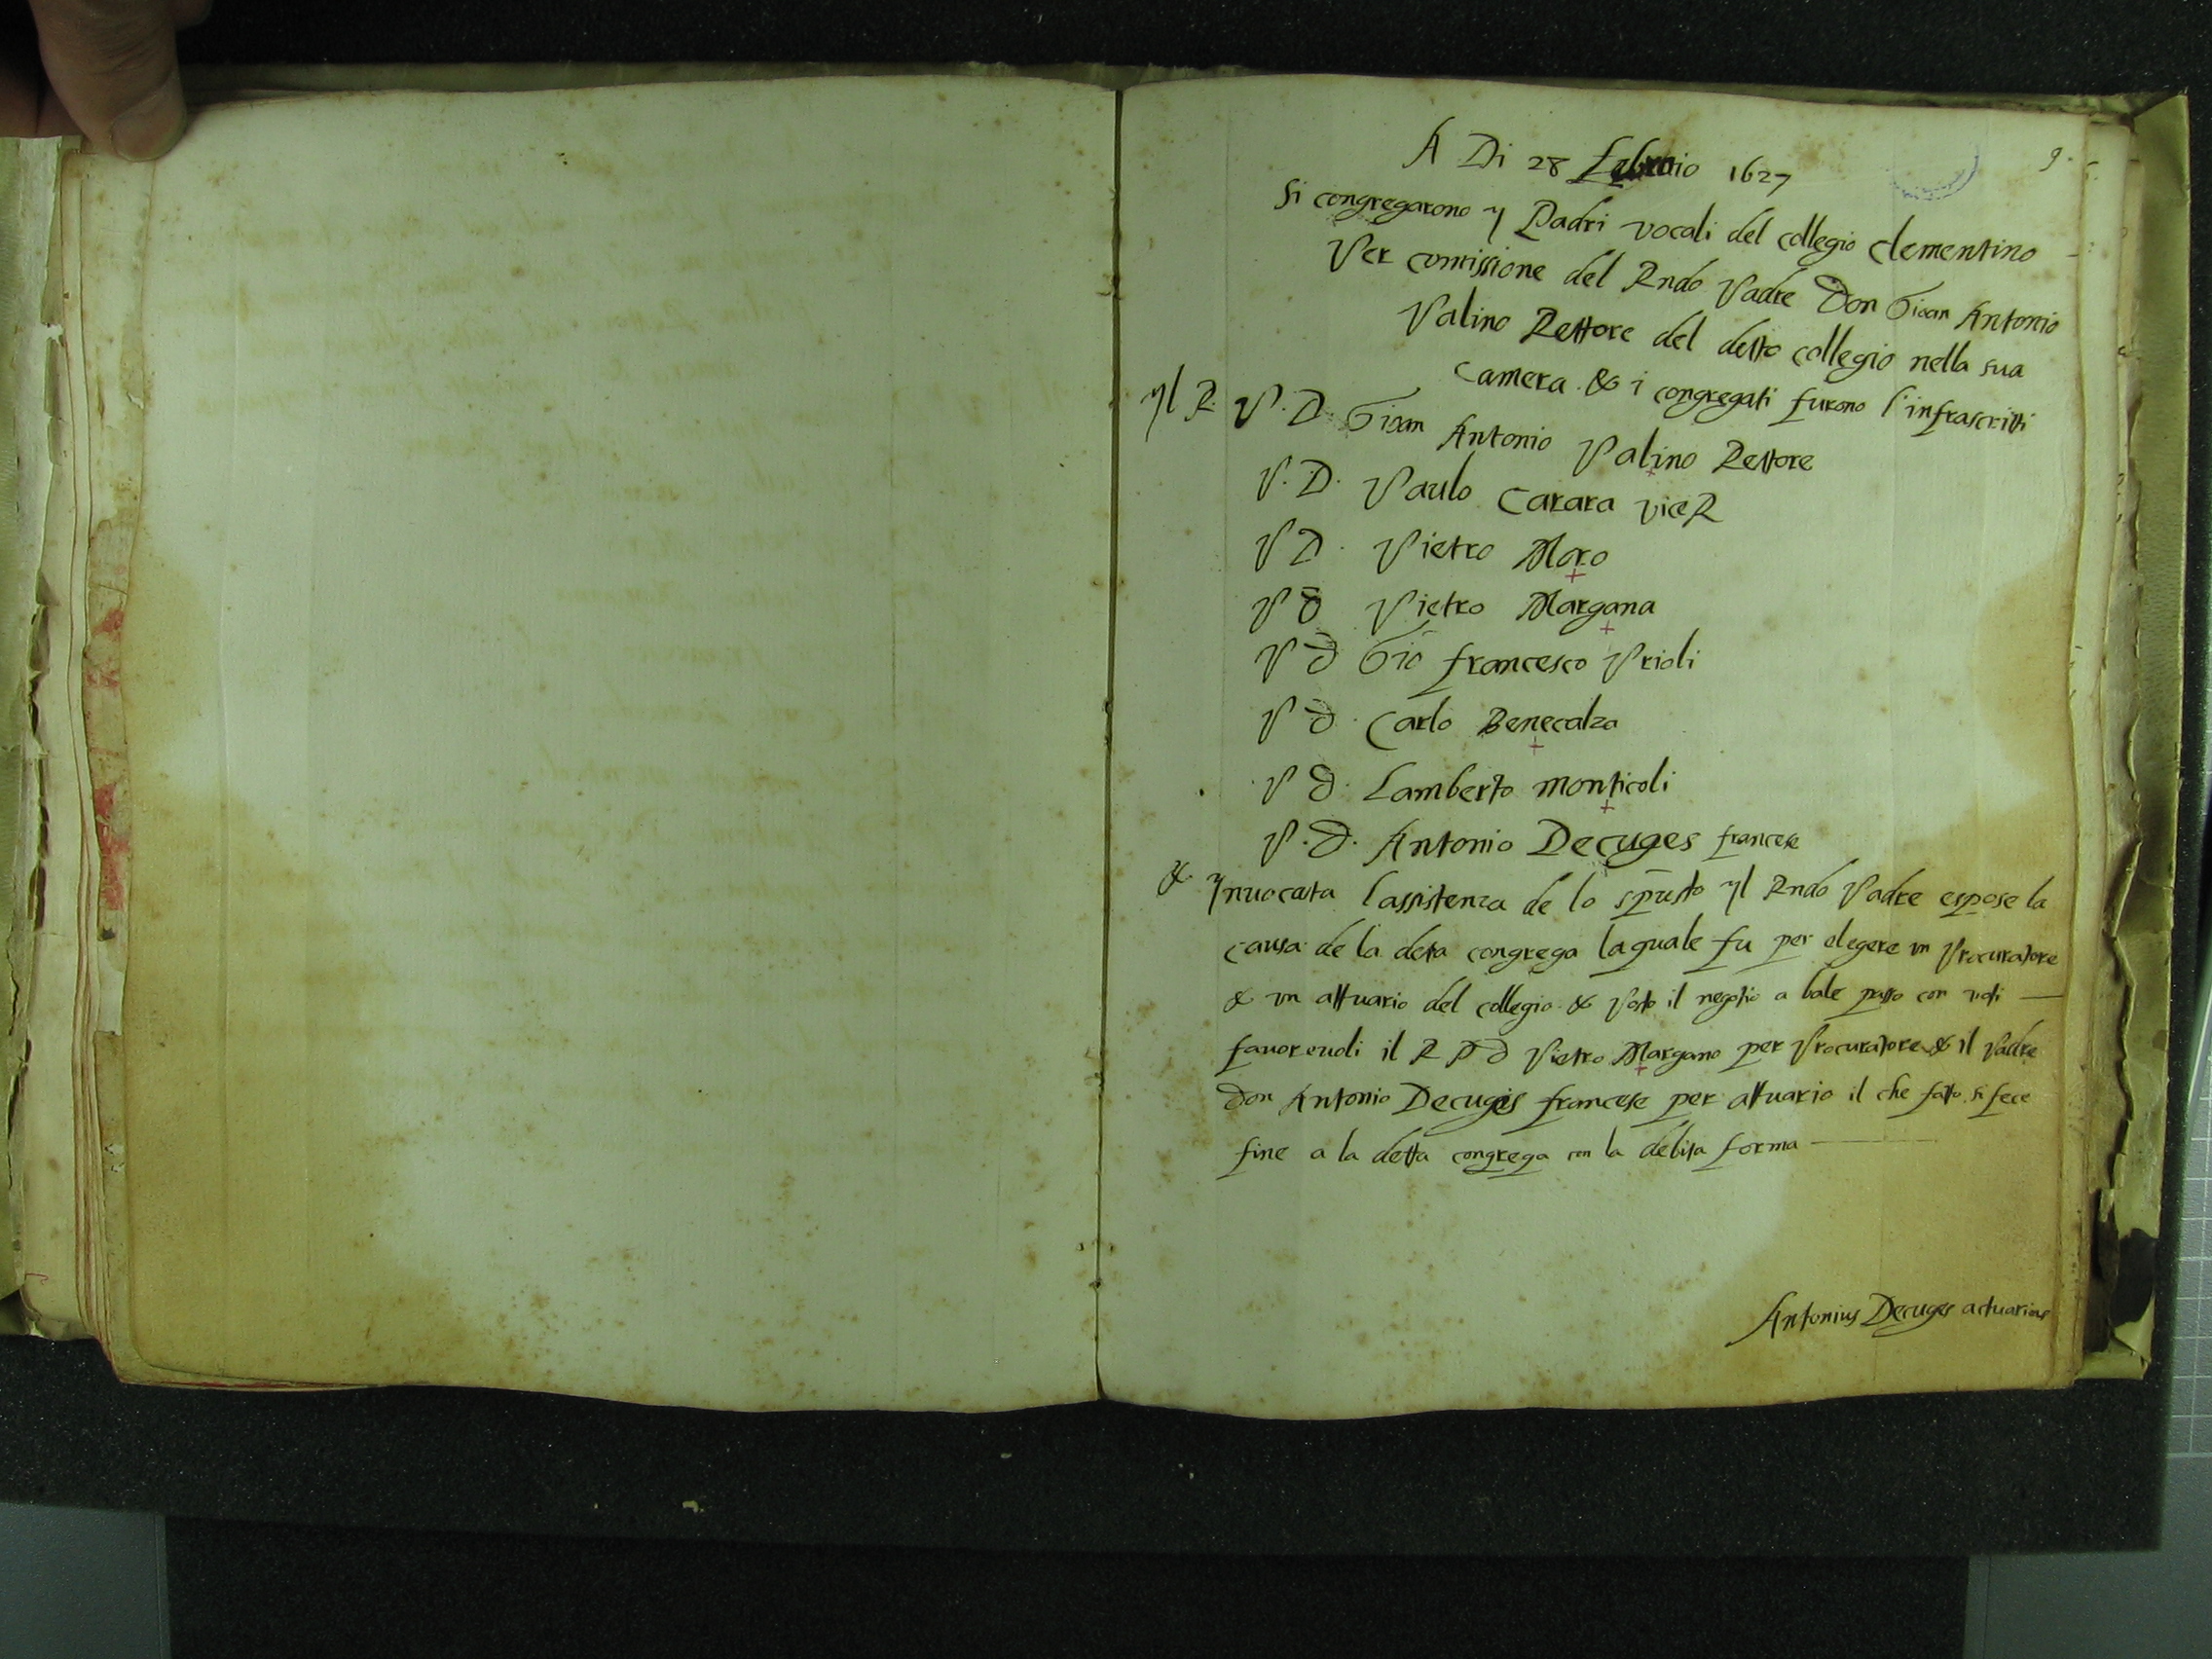 9.
A Di 28 febraio 1627
Si congregarono y Padri vocali del collegio clementino
Per comissione del Rndo Padre Don Gioan Antonio
Palino Rettore del detto collegio nella sua
camera & i congregati furono l'infrascritti
yl R. P. D. Gioan Antonio Palino Rettore
P. D. Paulo Carara vice R
P D. Pietro Moro
P D Pietro Margana
P D Gio francesco Prioli
P D. Carlo Benecalza
P D. Lamberto monticoli
P. D. Antonio Decuges francese
& ynuocata lassistenza de lo spusto yl Rndo Padre espose la
causa de la detta congrega laquale fu per elegere un Procuratore
& un attuario del collegio & Posto il negotio a bale passo con voti
fauoreuoli il R P D Pietro Margano per Procuratore & il Padre
Don Antonio Decuges francese per attuario il che fatto si fece
fine a la detta congrega con la debita forma
Antonius Decuges actuarius